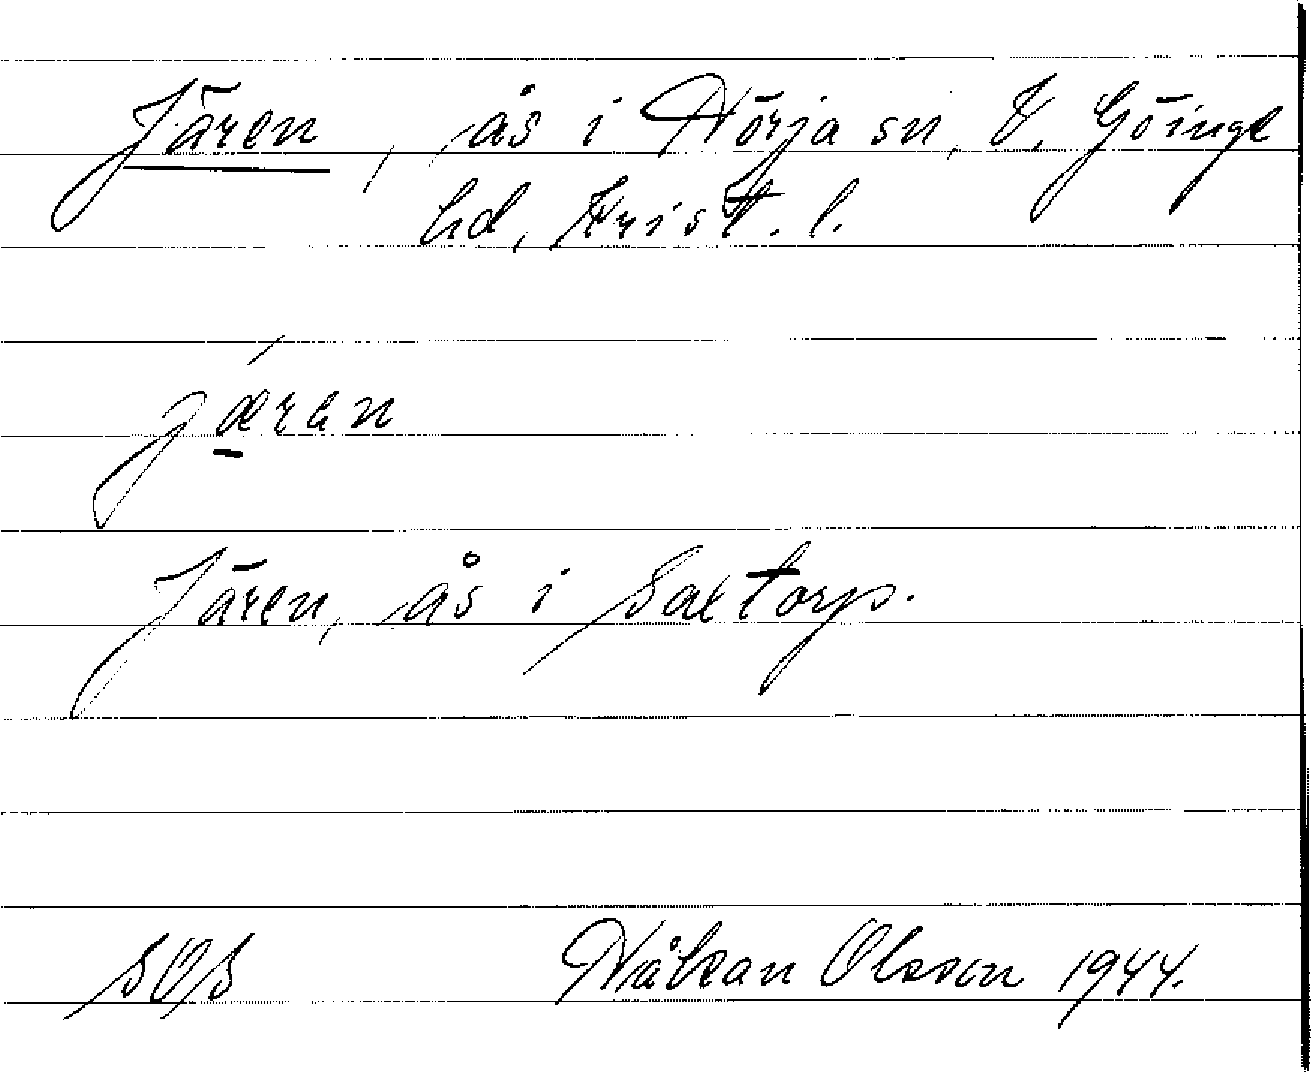 Jären, ås i Hörja sn, V. Göinge
hd, Krist. l.
jæran
Jären, ås i Saxtorp.
SOS
Håkan Olsson 1944.